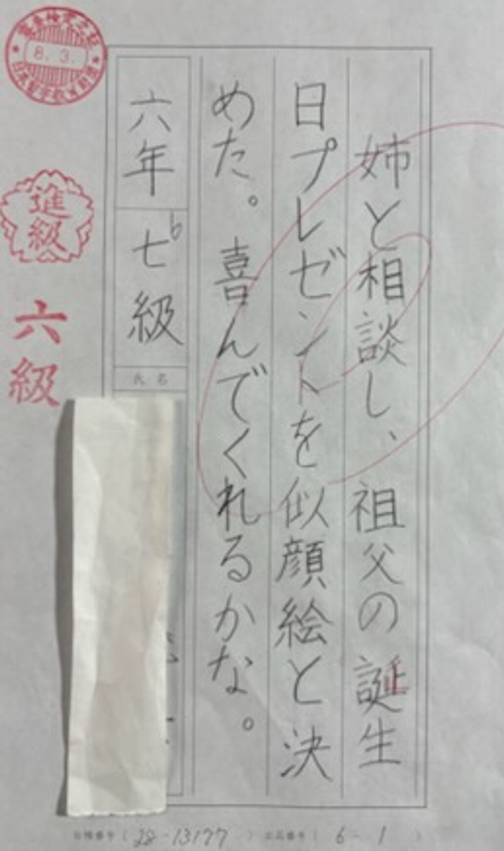 姉と相談し、祖父の誕生
日プレゼントを似顔絵と決
めた。喜んでくれるかな。
六年
七級
6
氏名
8.3.
進級
六級
(28-13177) (6-1)